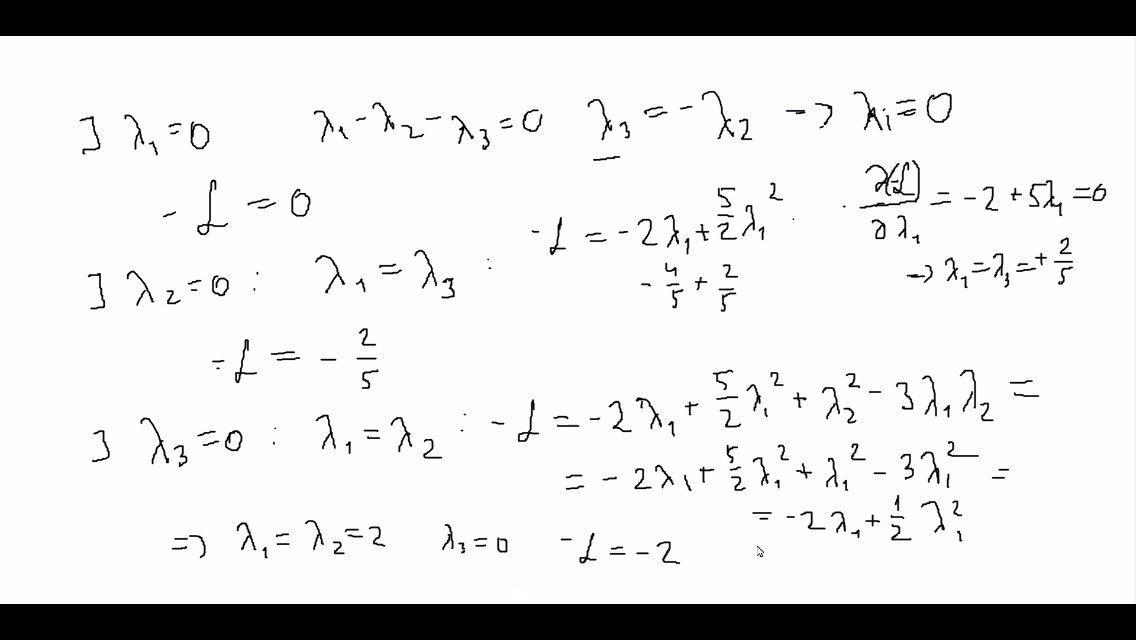 ∃ λ₁ = 0 λ₁ - λ₂ - λ₃ = 0 λ₃ = - λ₂ → λᵢ = 0
- ℒ = 0
- ℒ = - 2λ₁ + 5/2 λ₁² . ∂(-ℒ)/∂λ₁ = - 2 + 5λ₁ = 0
∃ λ₂ = 0 : λ₁ = λ₃ : - 4/5 + 2/5 → λ₁ = λ₃ = + 2/5
- ℒ = - 2/5
∃ λ₃ = 0 : λ₁ = λ₂ : - ℒ = - 2λ₁ + 5/2 λ₁² + λ₂² - 3λ₁λ₂ =
= - 2λ₁ + 5/2 λ₁² + λ₁² - 3λ₁² =
= - 2λ₁ + 1/2 λ₁²
⇒ λ₁ = λ₂ = 2 λ₃ = 0 - ℒ = - 2